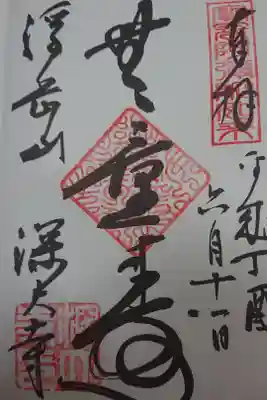 奉拝
平成丁酉
六月十一日
無量寿
浮岳山
深大寺